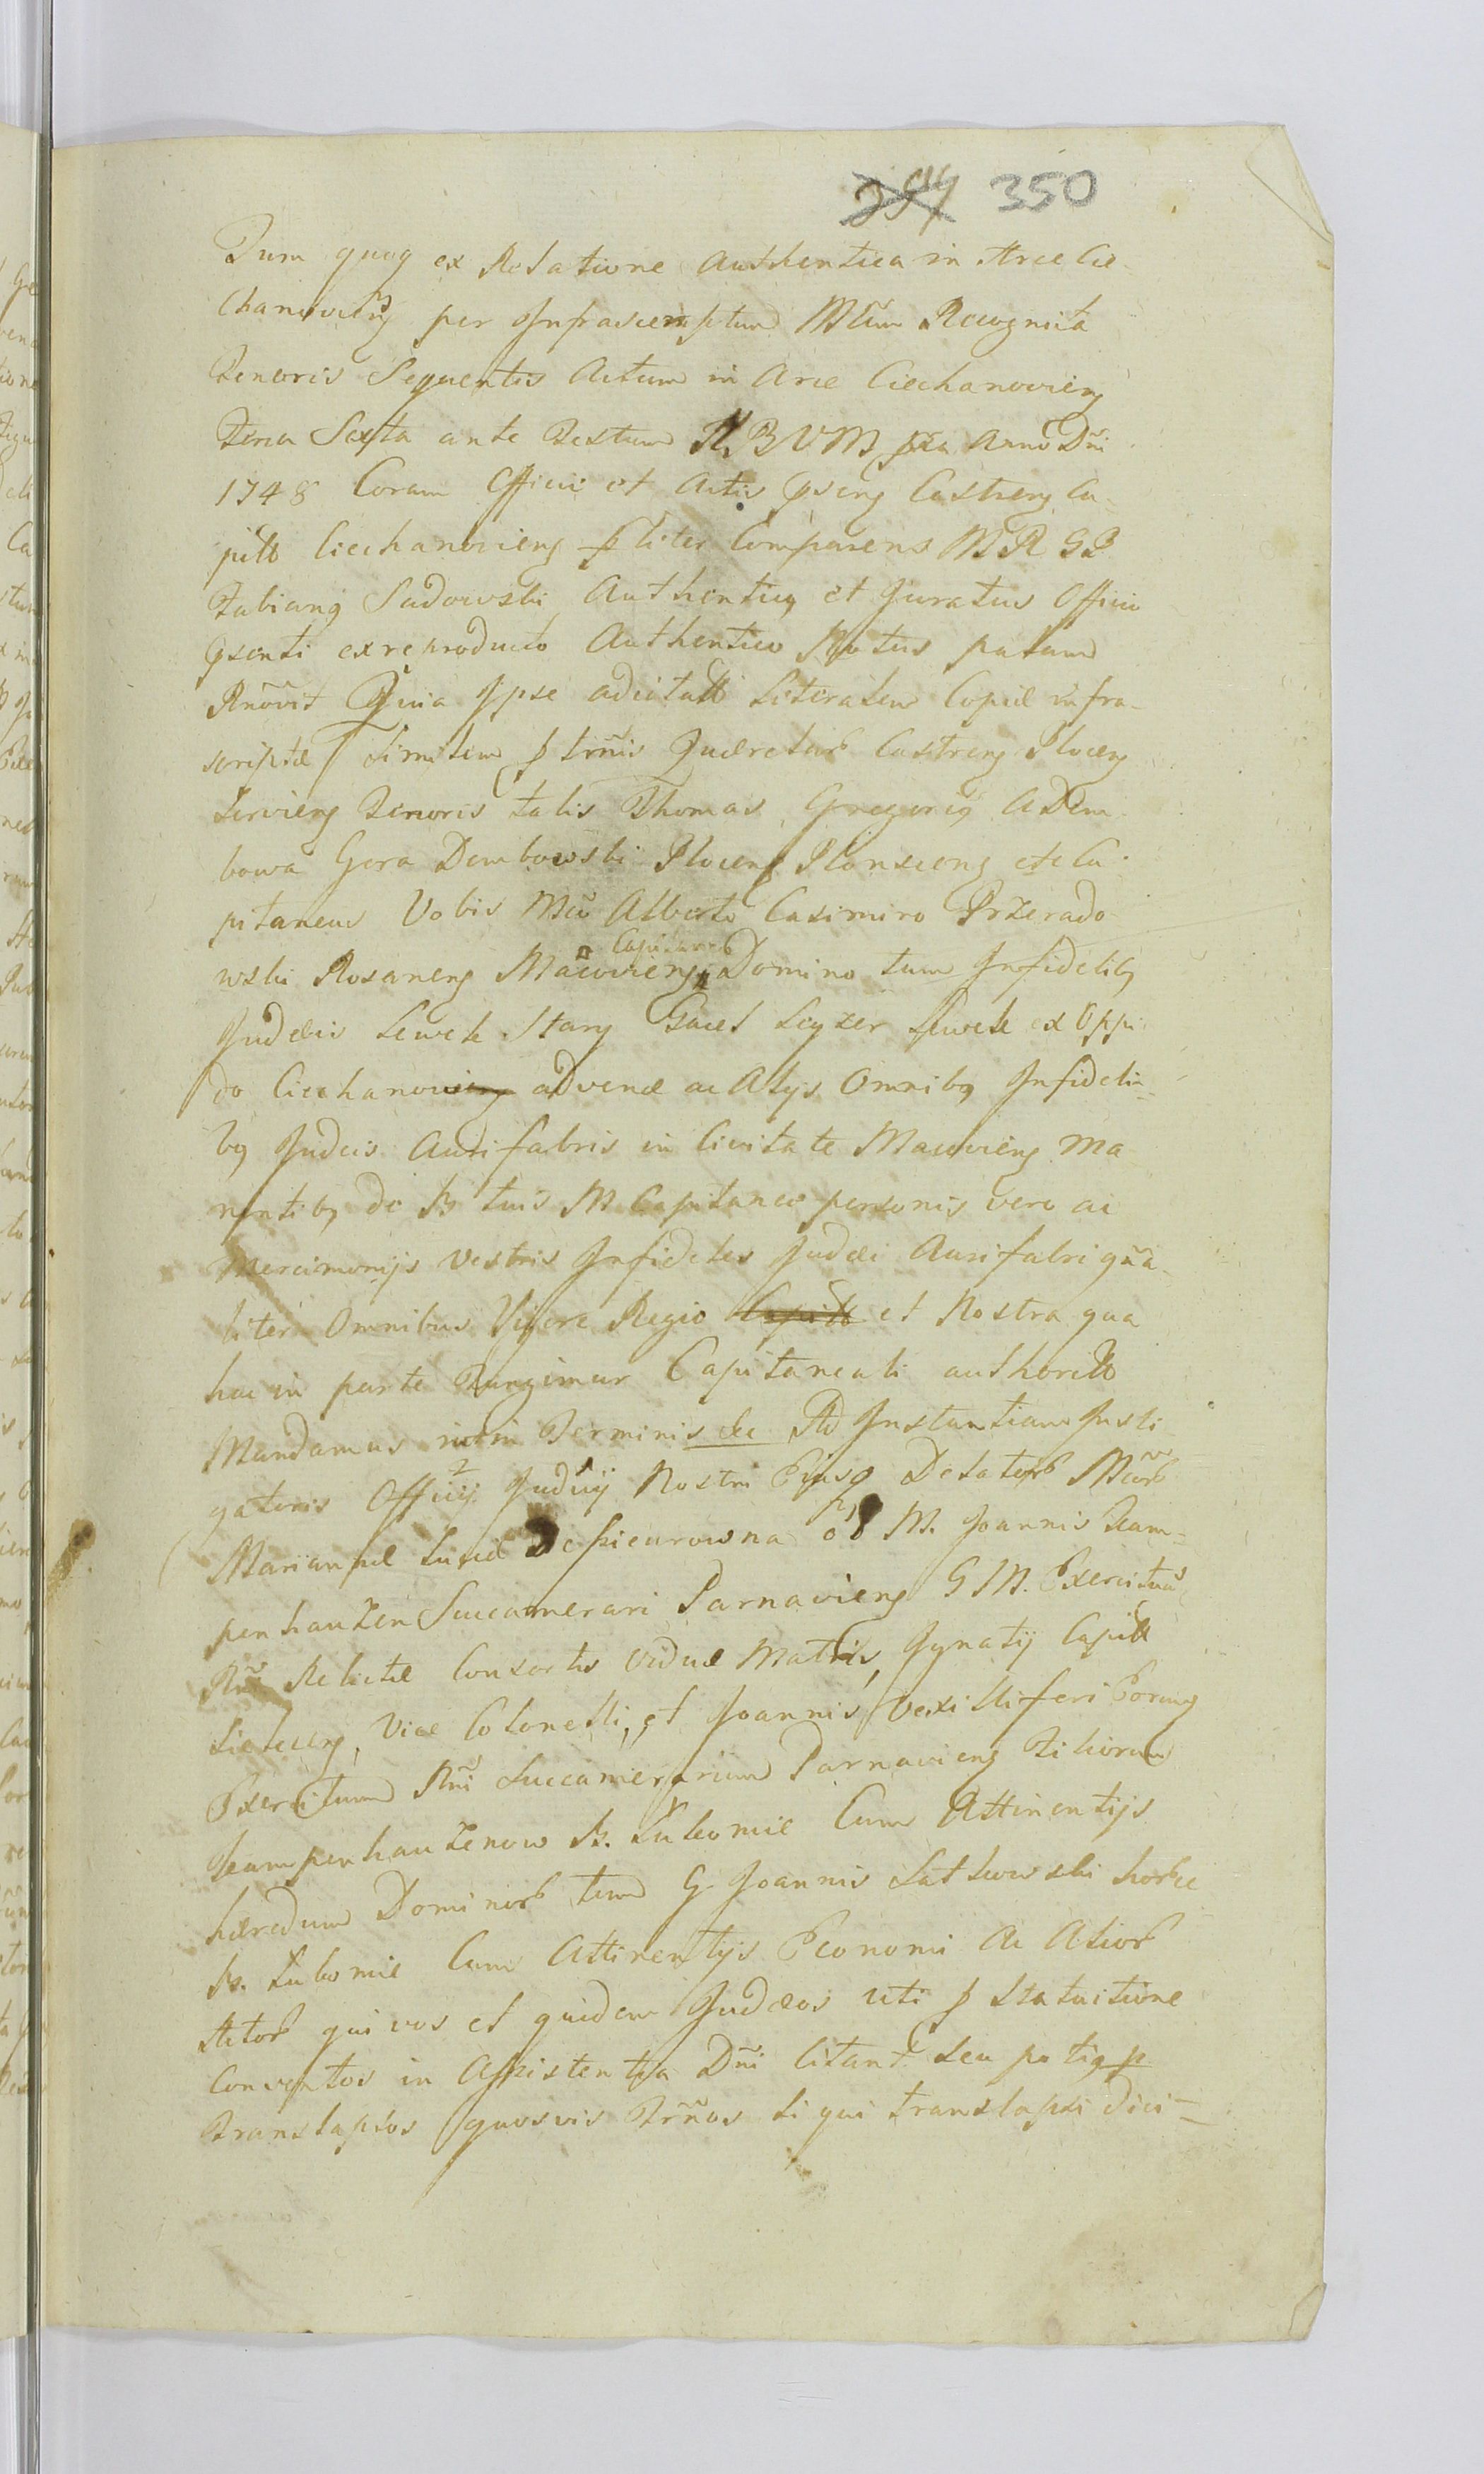 294 350
Tum quoq ex Relatione Authentica in Arce Cie-
chanovieng per Infrascriptum Mrum Recognita
Tenoris Sequentis Actum in Arce Ciechanovieng
Feria Sexta ante Festum N. B V M pxa Anno Dni
1748 Coram Officio et Actis pseng Castreng Ca-
pitt Ciechanovieng pliter Comparens M R G P
Fabiang Sadowski Authenticq et Juratus Officio
psenti ex reproducto Authentico Notus palam
Rnovit Quia Ipse adcitatt Literalem Copiæ infra-
scriptæ Similem p trnis Quærelarb Castreng Ploceng
Servieng Tenoris talis Thomas Gregorig a Dem-
bowa Gora Dembowski Ploceng Plonsceng etc Ca-
pitaneus Vobis Mco Alberto Casimiro Przerado-
wski Rosaneng Macovieng Capitaneo Domino tum Infidelibq
Judæis Lewek Stary Gacel Leyzer Lewek ex Oppi-
do Ciechanowieng advenæ ac Alijs Omnibq Infideli-
bq Judeis Aurifabris in Civitate Macovieng Ma-
nentibq de B tuis M Capitaneo personis vero ac
Mercimonijs Vestris Infideles Judæi Aurifabri gna-
liter Omnibus Vigore Regio Capitt et Nostra qua
hac in parte Fungimur Capitaneali authoritt
Mandamus ut in Terminis &c Ad Instantiam Insti-
gatoris Officij Judicij Nostri Ejusq Delatorb Mcarb
Mariannæ Luciæ De olim M. Joannis Kam-
penhauzen Succamerari Parnavieng G M. Exercituum
Rni Relictæ Consortis Viduæ Matris, Ignatij Capitt
Vice Colonelli, et Joannis Vexilliferi
Exercituum Rni Succamerarium Parnavieng Filiorum
Kampenhauzenow B. Lukomie Cum Attinentijs
hæredum Dominorb tum G. Joannis Sutkowski
B. Lukomie Cum Attinentijs Economi Ac Aliorb
Actorb qui vos et quidem Judæos uti p Statuitione
Conventos in Assistentia Dni Citant Seu potiq p
Translapsos quosvis Trnos si qui translapsi dici-